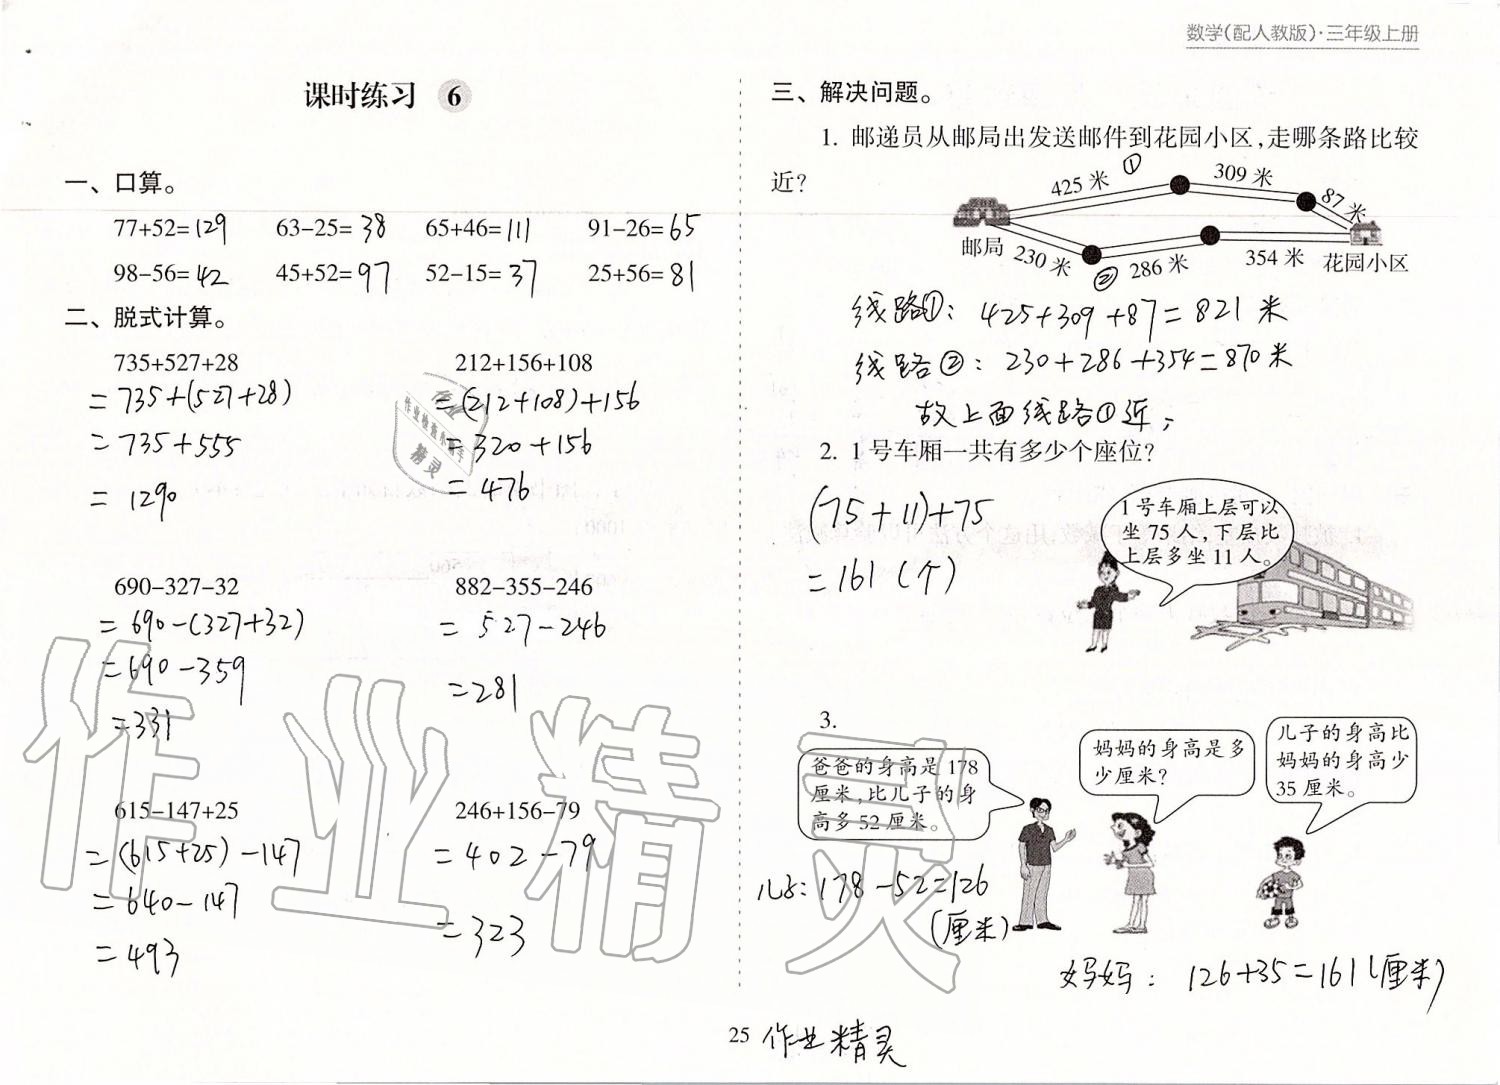 数学(配人教版)·三年级上册
课时练习 6
一、口算。
77+52=129 63-25=38 65+46=111 91-26=65
98-56=42 45+52=97 52-15=37 25+56=81
二、脱式计算。
735+527+28 212+156+108
=735+(527+28) =(212+108)+156
=735+555 =320+156
=1290 =476
690-327-32 882-355-246
=690-(327+32) =527-246
=690-359 =281
=331
615-147+25 246+156-79
=(615+25)-147 =402-79
=640-147 =323
=493
三、解决问题。
1. 邮递员从邮局出发送邮件到花园小区,走哪条路比较
近?
425 米 ① 309 米 87 米
邮局 230 米 ② 286 米 354 米 花园小区
线路①: 425+309+87=821 米
线路②: 230+286+354=870 米
故上面线路①近;
2. 1 号车厢一共有多少个座位?
(75+11)+75
=161(个)
1 号车厢上层可以
坐 75 人,下层比
上层多坐 11 人。
3.
爸爸的身高是 178
厘米,比儿子的身
高多 52 厘米。
妈妈的身高是多
少厘米?
儿子的身高比
妈妈的身高少
35 厘米。
儿子: 178-52=126
(厘米)
妈妈: 126+35=161(厘米)
25 作业精灵
作业精灵
作业
作业检查小助手
精灵